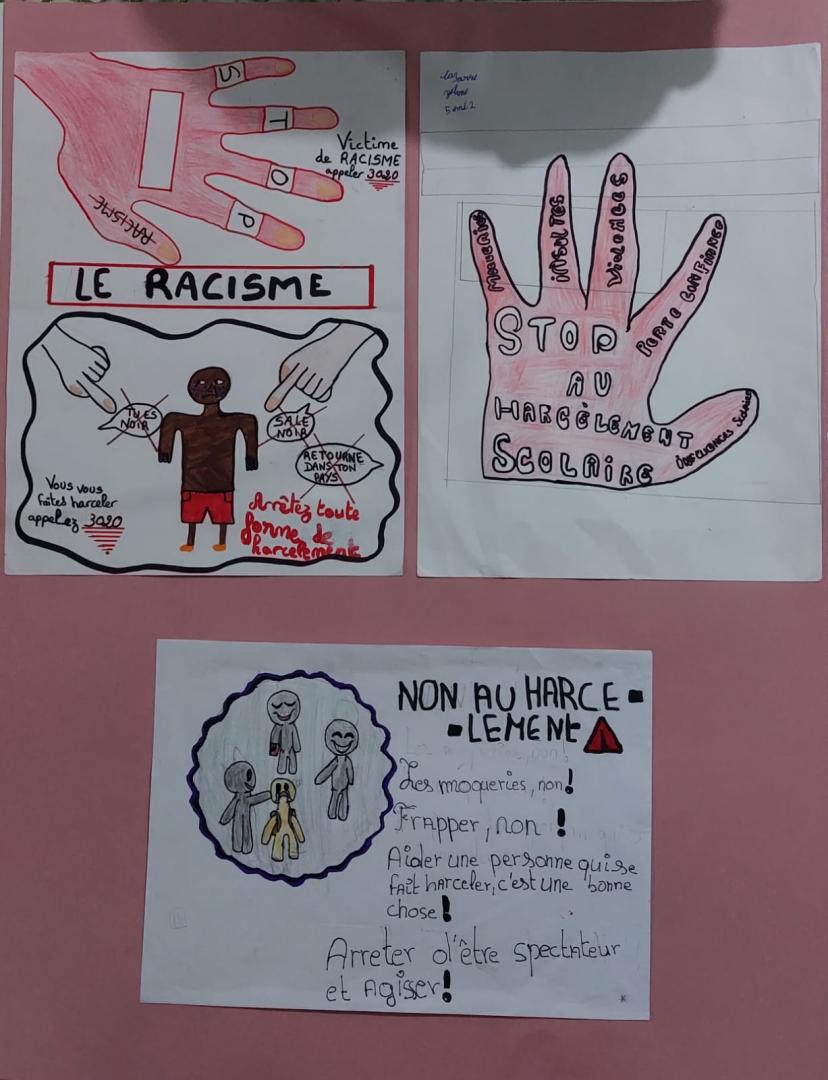 S
T
O
P
RACISME
Victime
de RACISME
appeler 3020
LE RACISME
TU ES
NOIR
SALE
NOIR
RETOURNE
DANS TON
PAYS
Vous vous
faites harceler
appelez 3020
Arrêtez toute
forme de
harcelement
5 eme 2
INSULTES
VIOLENCES
PERTE CONFIANCE
STOP
AU
HARCÈLEMENT
SCOLAIRE
NON AU HARCE-
-LEMENT
Les moqueries, non!
Frapper, non !
Aider une personne qui se
fait harceler, c'est une bonne
chose!
Arreter d'être spectateur
et Agiser!